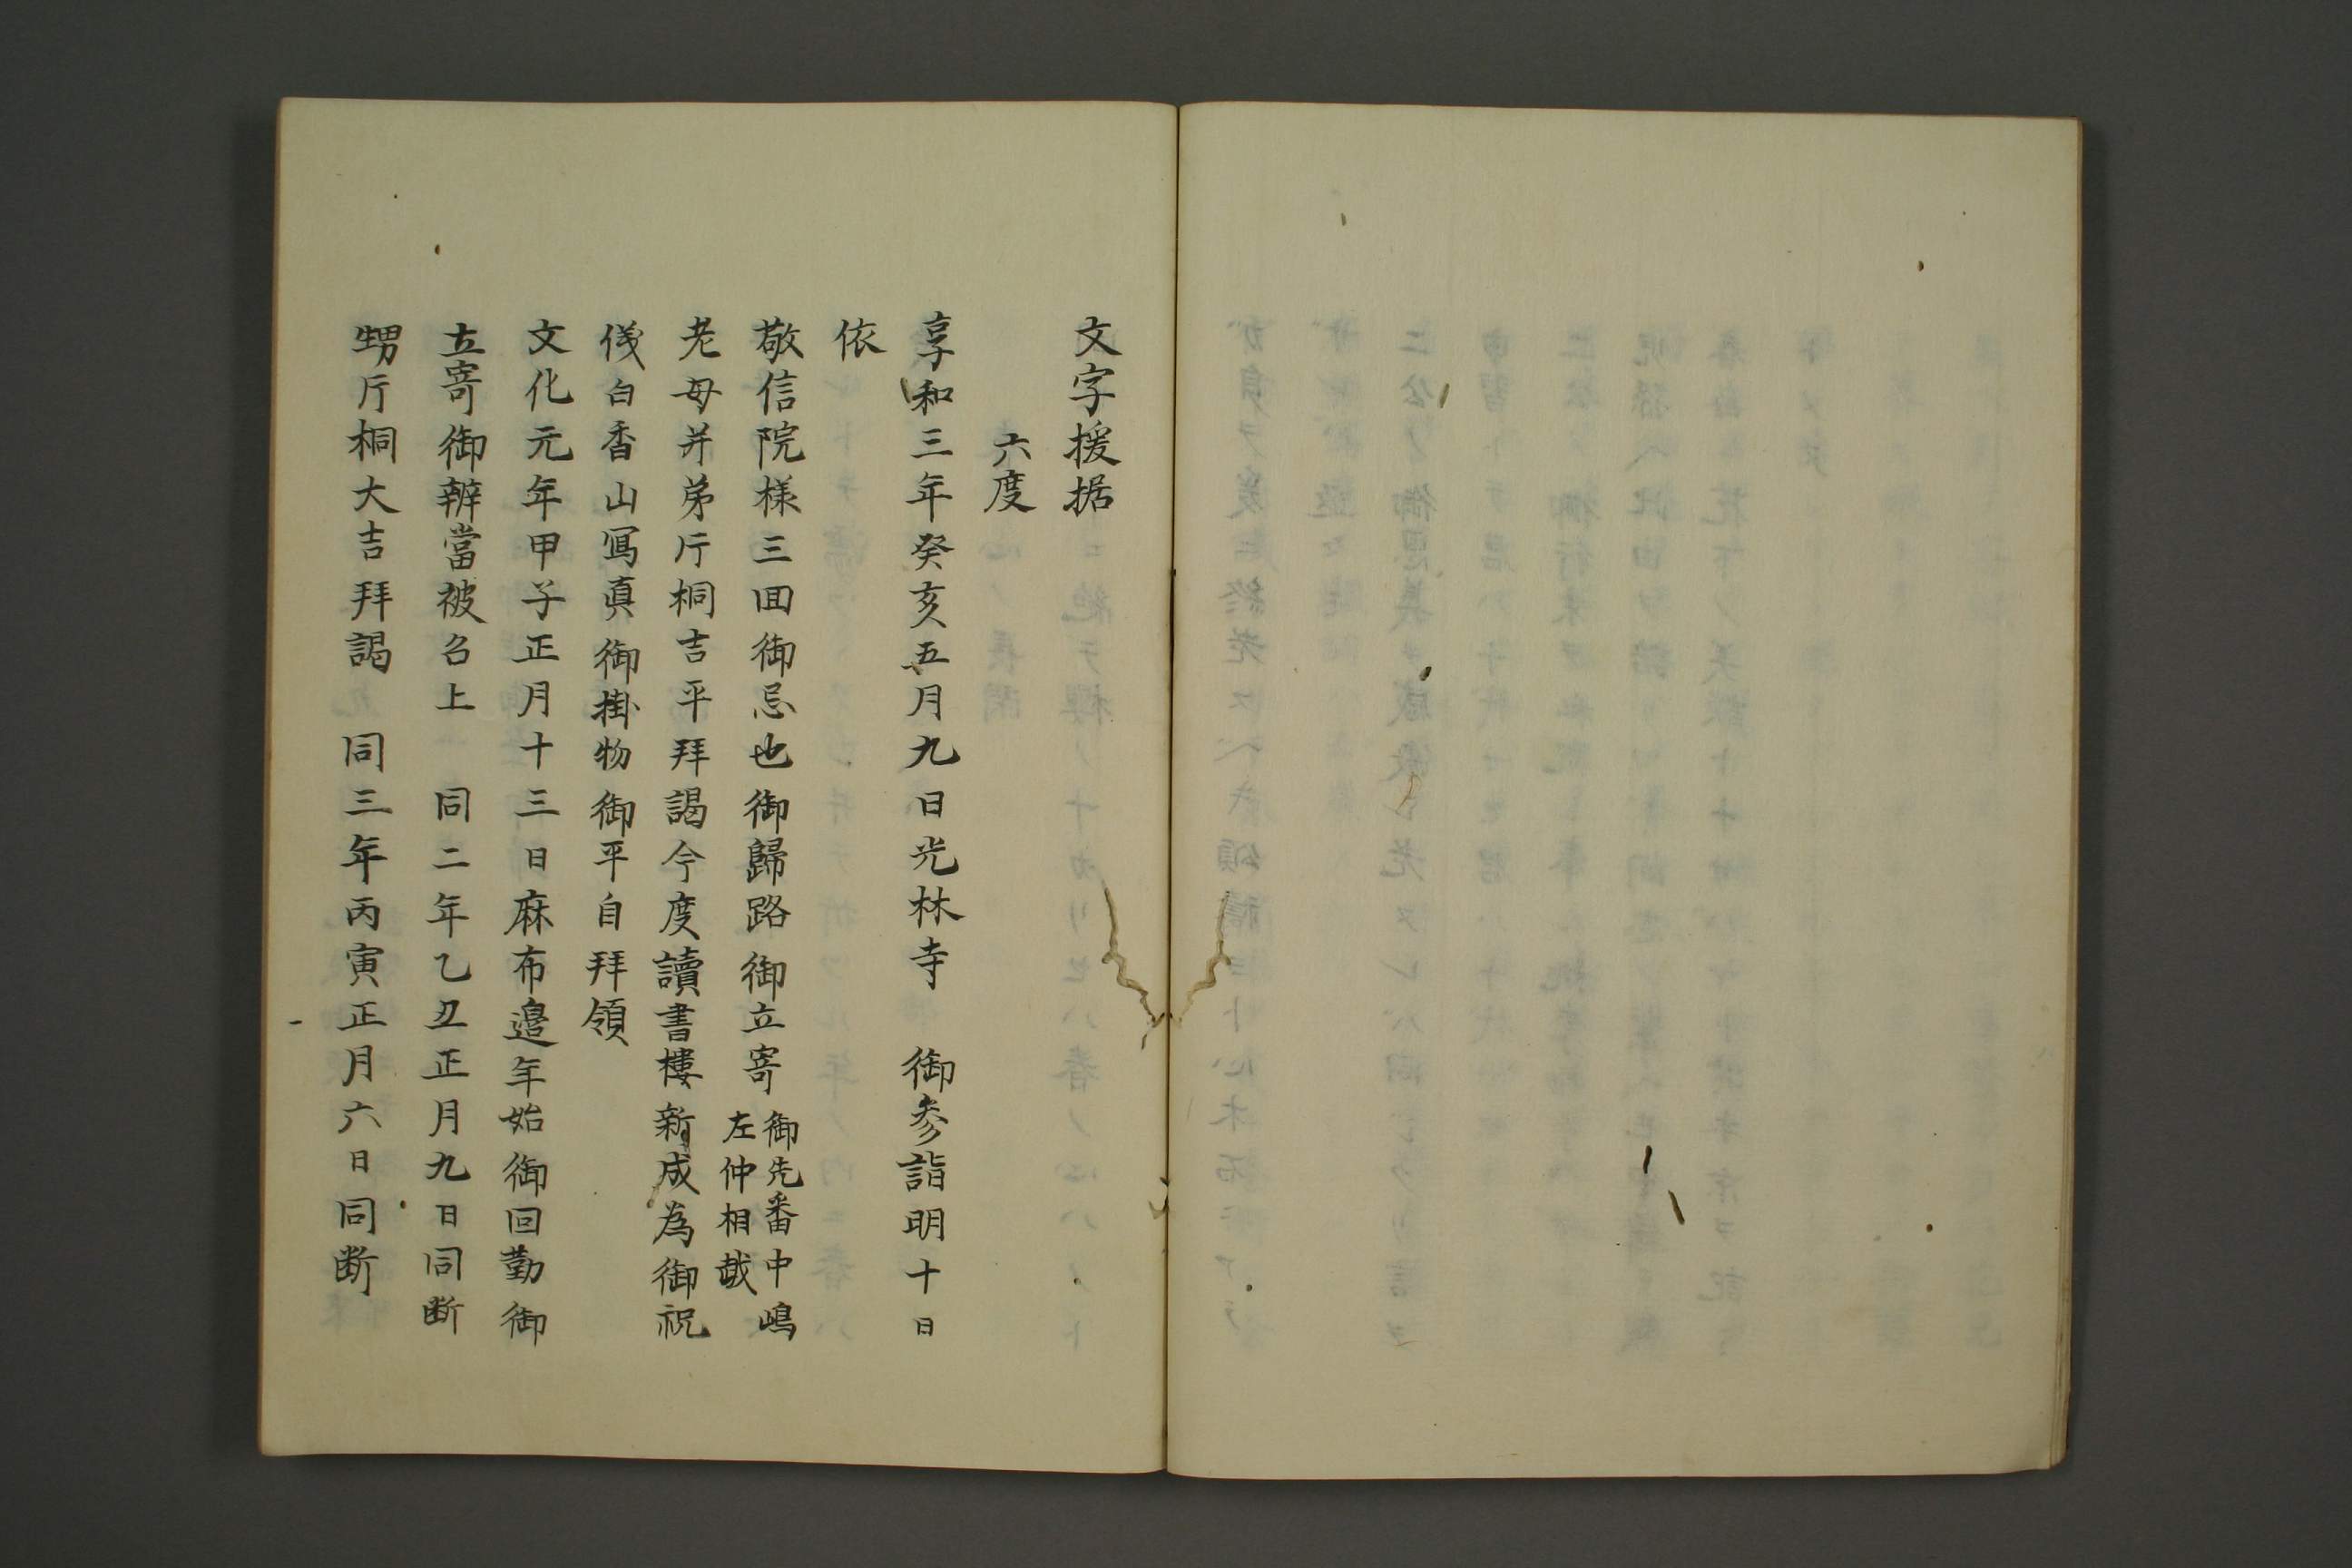 文字援据
六度
享和三年癸亥五月九日光林寺　御参詣明十日
依
敬信院様三回御忌也御歸路御立寄御先番中嶋
左仲相越
老母并弟斤桐吉平拜謁今度讀書樓新成為御祝
儀白香山寫真御掛物御平自拜領
文化元年甲子正月十三日麻布邉年始御回勤御
立寄御辨當被召上　同二年乙丑正月九日同断
甥斤桐大吉拜謁　同三年丙寅正月六日同断